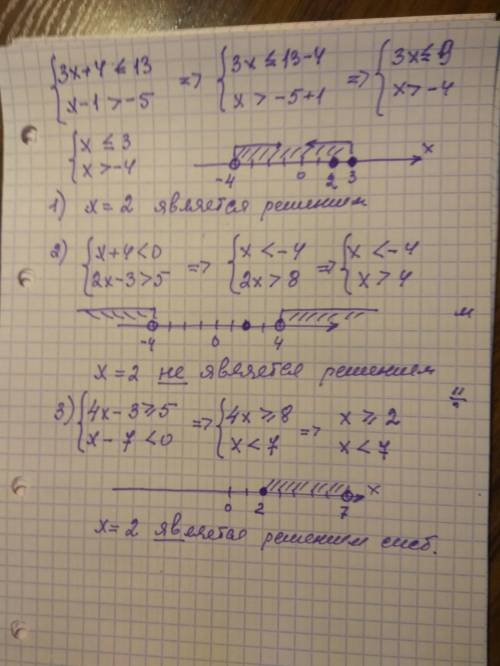 {3x+4≤13 => {3x≤13-4 => {3x≤9
{x-1>-5 {x>-5+1 {x>-4
{x≤3
{x>-4
-4 0 2 3 x
1) x=2 является решением
2) {x+4<0 => {x<-4 => {x<-4
{2x-3>5 {2x>8 {x>4
-4 0 4
x=2 не является решением
3) {4x-3≥5 => {4x≥8 => x≥2
{x-7<0 {x<7 x<7
0 2 7 x
x=2 является решением сист.